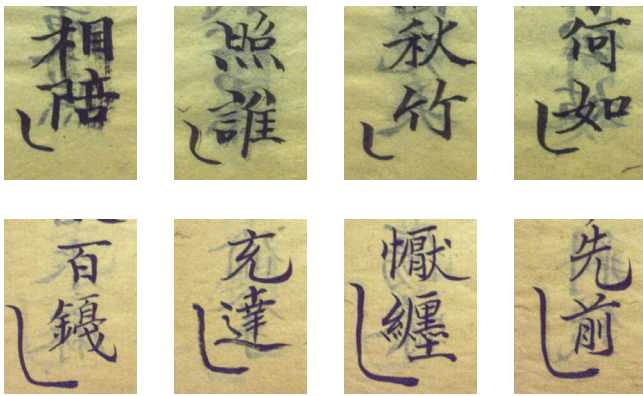 相陪
照誰
秋竹
何如
百
充達
懨纏
先前